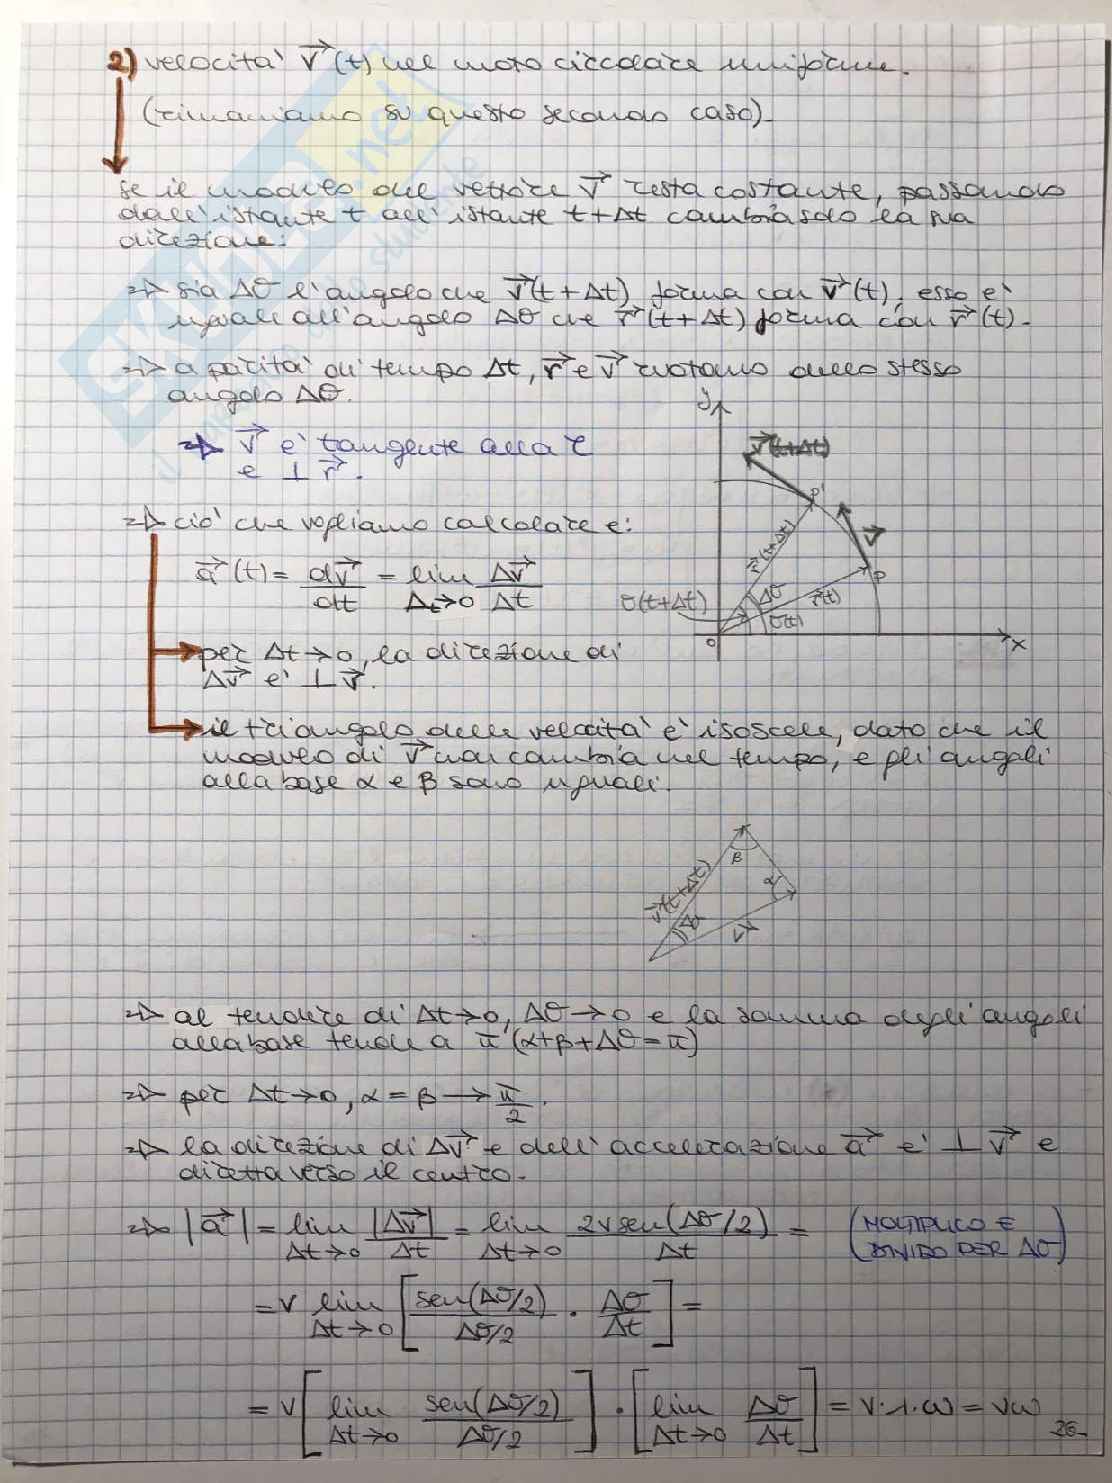 2) velocità v⃗(t) nel moto circolare uniforme.
(rimaniamo su questo secondo caso).
se il modulo del vettore v⃗ resta costante, passando
dall'istante t all'istante t+Δt cambia solo la sua
direzione:
=> sia Δθ l'angolo che v⃗(t+Δt) forma con v⃗(t), esso e'
uguale all'angolo Δθ che r⃗(t+Δt) forma con r⃗(t).
=> a parità di tempo Δt, r⃗ e v⃗ ruotano dello stesso
angolo Δθ.
=> v⃗ e' tangente alla τ
e ⊥ r⃗.
y
v⃗(t+Δt)
P'
v⃗
r⃗(t+Δt)
P
Δθ
r⃗(t)
θ(t+Δt)
θ(t)
O
x
=> ciò che vogliamo calcolare e':
a⃗(t) = dv⃗/dt = lim Δt→0 Δv⃗/Δt
per Δt→0, la direzione di
Δv⃗ e' ⊥ v⃗.
il triangolo delle velocità e' isoscele, dato che il
modulo di v⃗ non cambia nel tempo, e gli angoli
alla base α e β sono uguali.
β
v⃗(t+Δt)
α
v⃗
=> al tendere di Δt→0, Δθ→0 e la somma degli angoli
alla base tende a π (α+β+Δθ=π)
=> per Δt→0, α = β → π/2.
=> la direzione di Δv⃗ e dell'accelerazione a⃗ e' ⊥ v⃗ e
diretta verso il centro.
=> |a⃗| = lim Δt→0 |Δv⃗|/Δt = lim Δt→0 2v sen(Δθ/2)/Δt = (MOLTIPLICO E
DIVIDO PER Δθ)
= v lim Δt→0 [sen(Δθ/2)/(Δθ/2) · Δθ/Δt] =
= v [lim Δt→0 sen(Δθ/2)/(Δθ/2)] · [lim Δt→0 Δθ/Δt] = v·1·ω = vω
26-